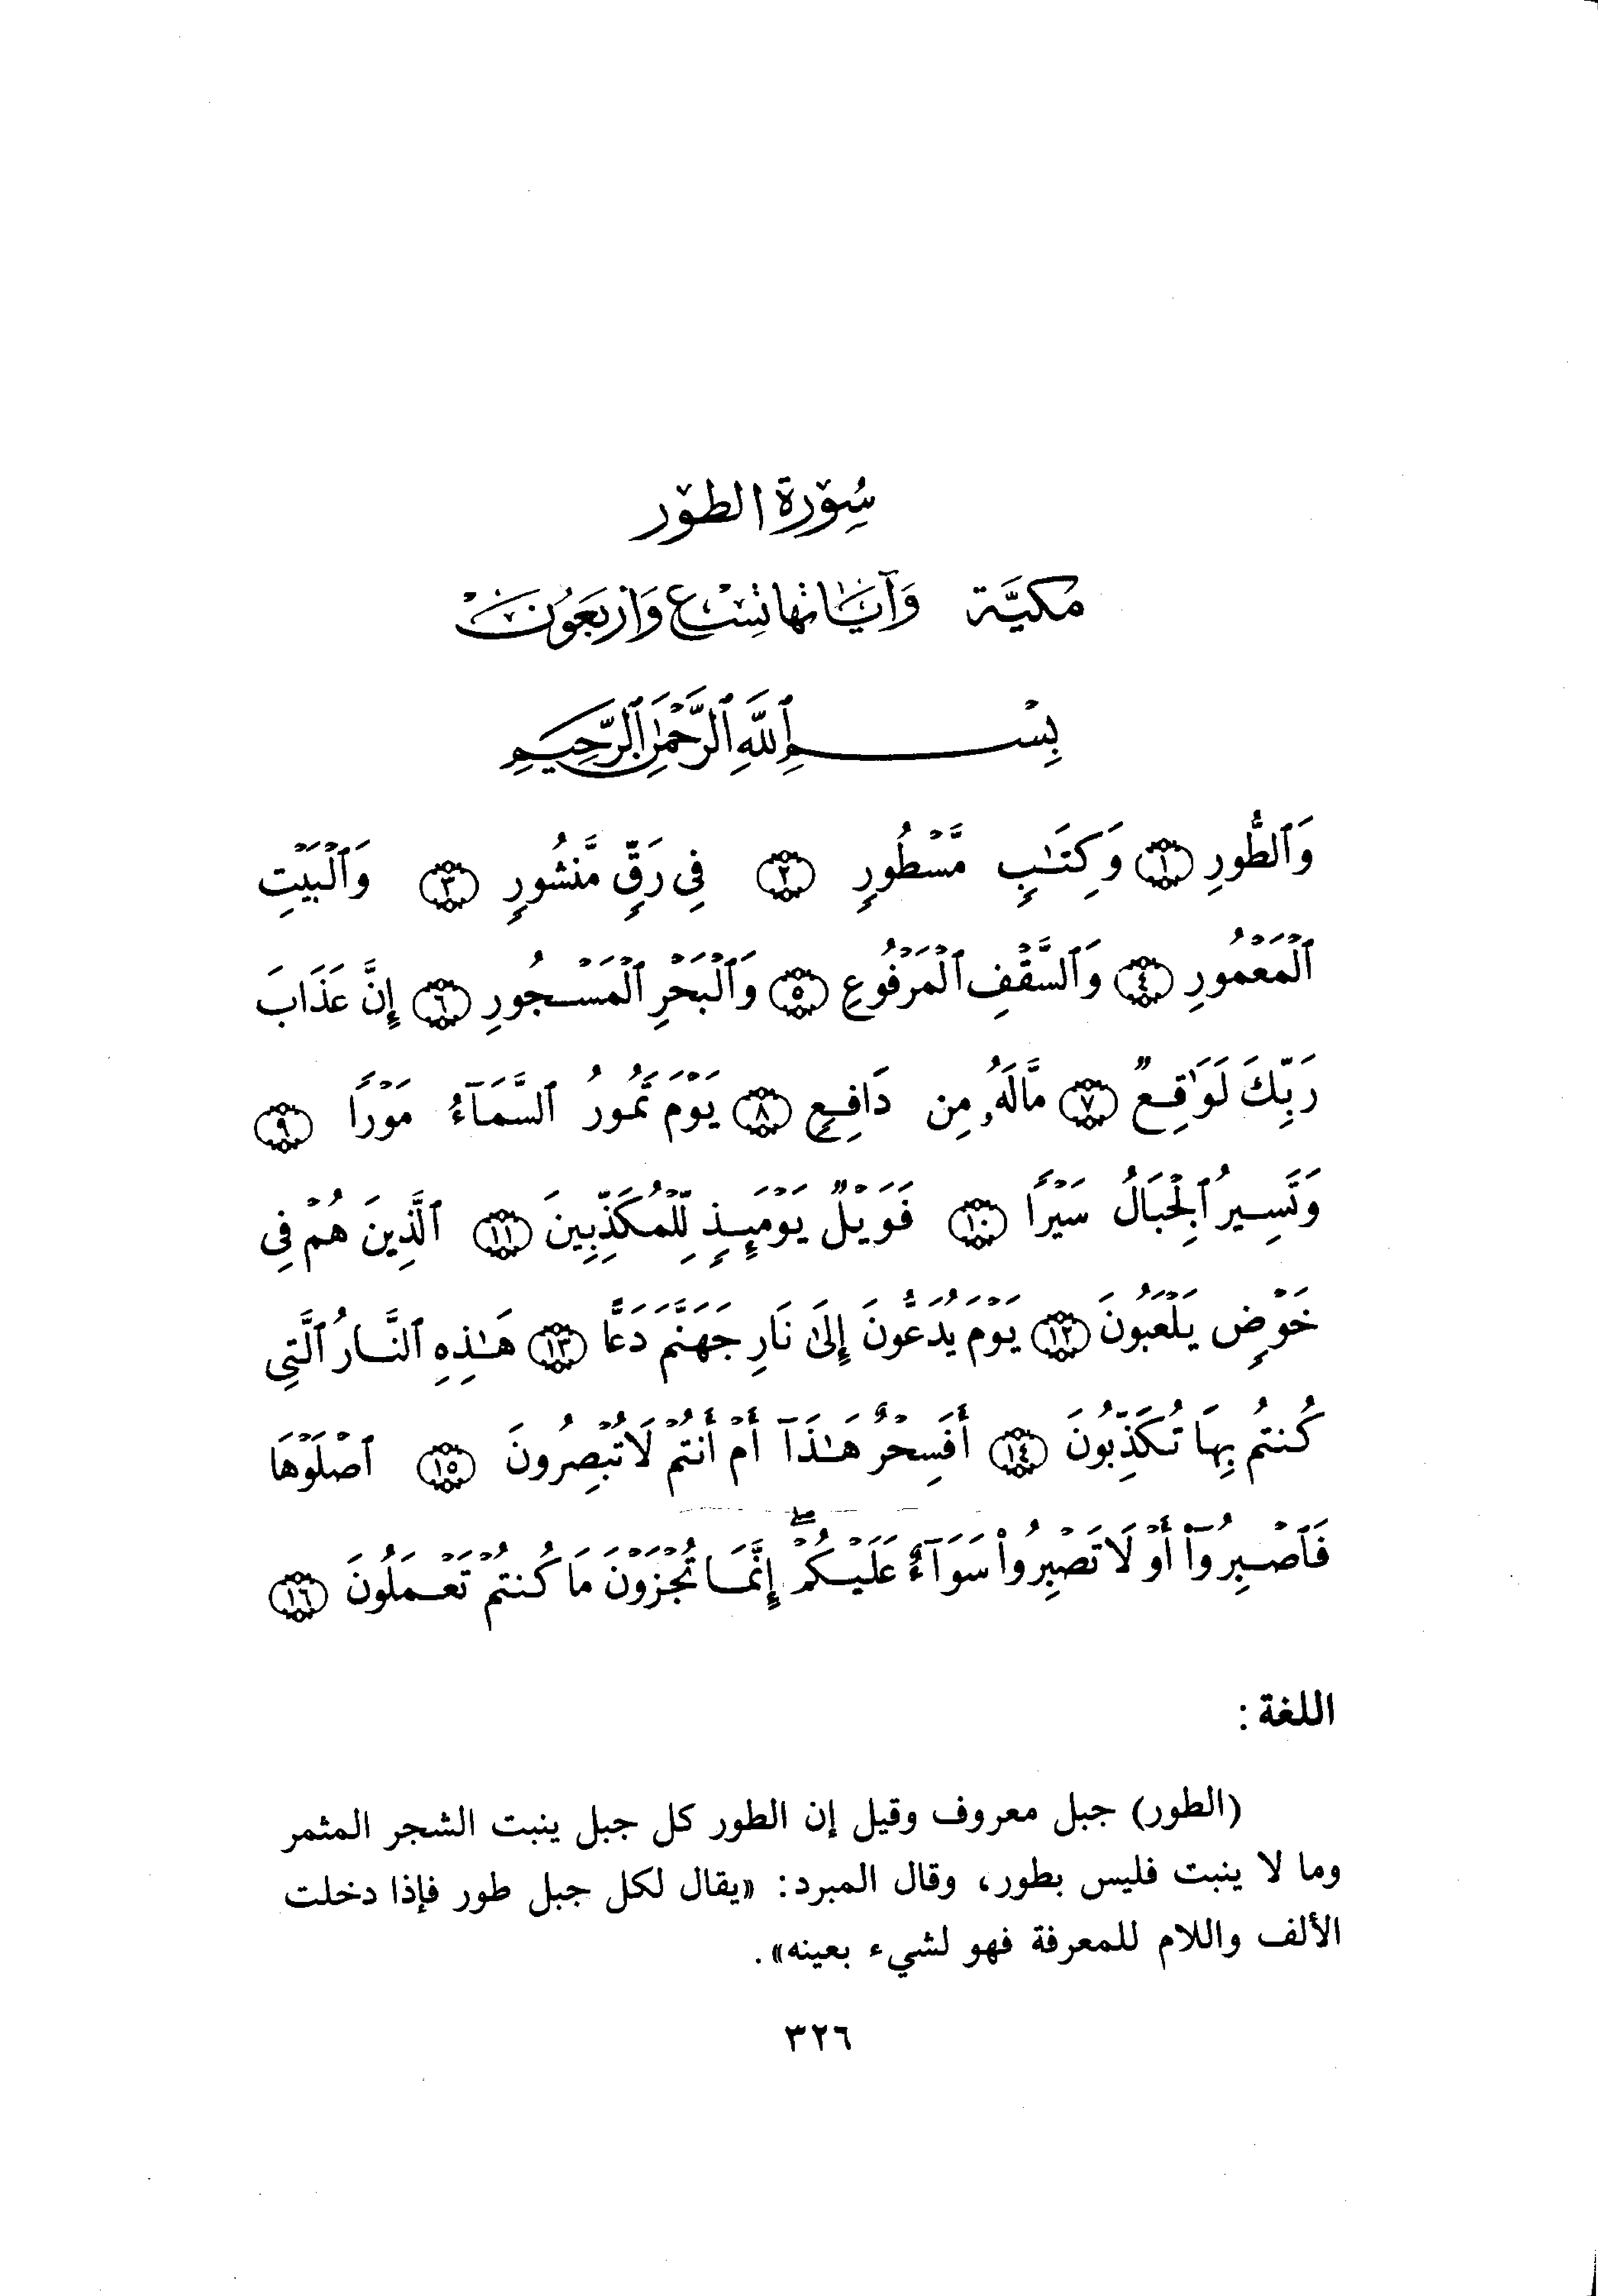 سُورَة الطور
مكيَّة وَآيَاتها تسْع وَأربَعُون
بِسْمِ ٱللَّهِ ٱلرَّحْمَٰنِ ٱلرَّحِيمِ
وَٱلطُّورِ ١ وَكِتَٰبٍ مَّسْطُورٍ ٢ فِى رَقٍّ مَّنشُورٍ ٣ وَٱلْبَيْتِ
ٱلْمَعْمُورِ ٤ وَٱلسَّقْفِ ٱلْمَرْفُوعِ ٥ وَٱلْبَحْرِ ٱلْمَسْجُورِ ٦ إِنَّ عَذَابَ
رَبِّكَ لَوَٰقِعٌ ٧ مَّالَهُۥ مِن دَافِعٍ ٨ يَوْمَ تَمُورُ ٱلسَّمَآءُ مَوْرًا ٩
وَتَسِيرُ ٱلْجِبَالُ سَيْرًا ١٠ فَوَيْلٌ يَوْمَئِذٍ لِّلْمُكَذِّبِينَ ١١ ٱلَّذِينَ هُمْ فِى
خَوْضٍ يَلْعَبُونَ ١٢ يَوْمَ يُدَعُّونَ إِلَىٰ نَارِ جَهَنَّمَ دَعًّا ١٣ هَٰذِهِ ٱلنَّارُ ٱلَّتِى
كُنتُم بِهَا تُكَذِّبُونَ ١٤ أَفَسِحْرٌ هَٰذَآ أَمْ أَنتُمْ لَا تُبْصِرُونَ ١٥ ٱصْلَوْهَا
فَٱصْبِرُوٓا۟ أَوْ لَا تَصْبِرُوا۟ سَوَآءٌ عَلَيْكُمْ ۖ إِنَّمَا تُجْزَوْنَ مَا كُنتُمْ تَعْمَلُونَ ١٦
اللغة :
(الطور) جبل معروف وقيل إن الطور كل جبل ينبت الشجر المثمر
وما لا ينبت فليس بطور، وقال المبرد: «يقال لكل جبل طور فإذا دخلت
الألف واللام للمعرفة فهو لشيء بعينه».
٣٢٦